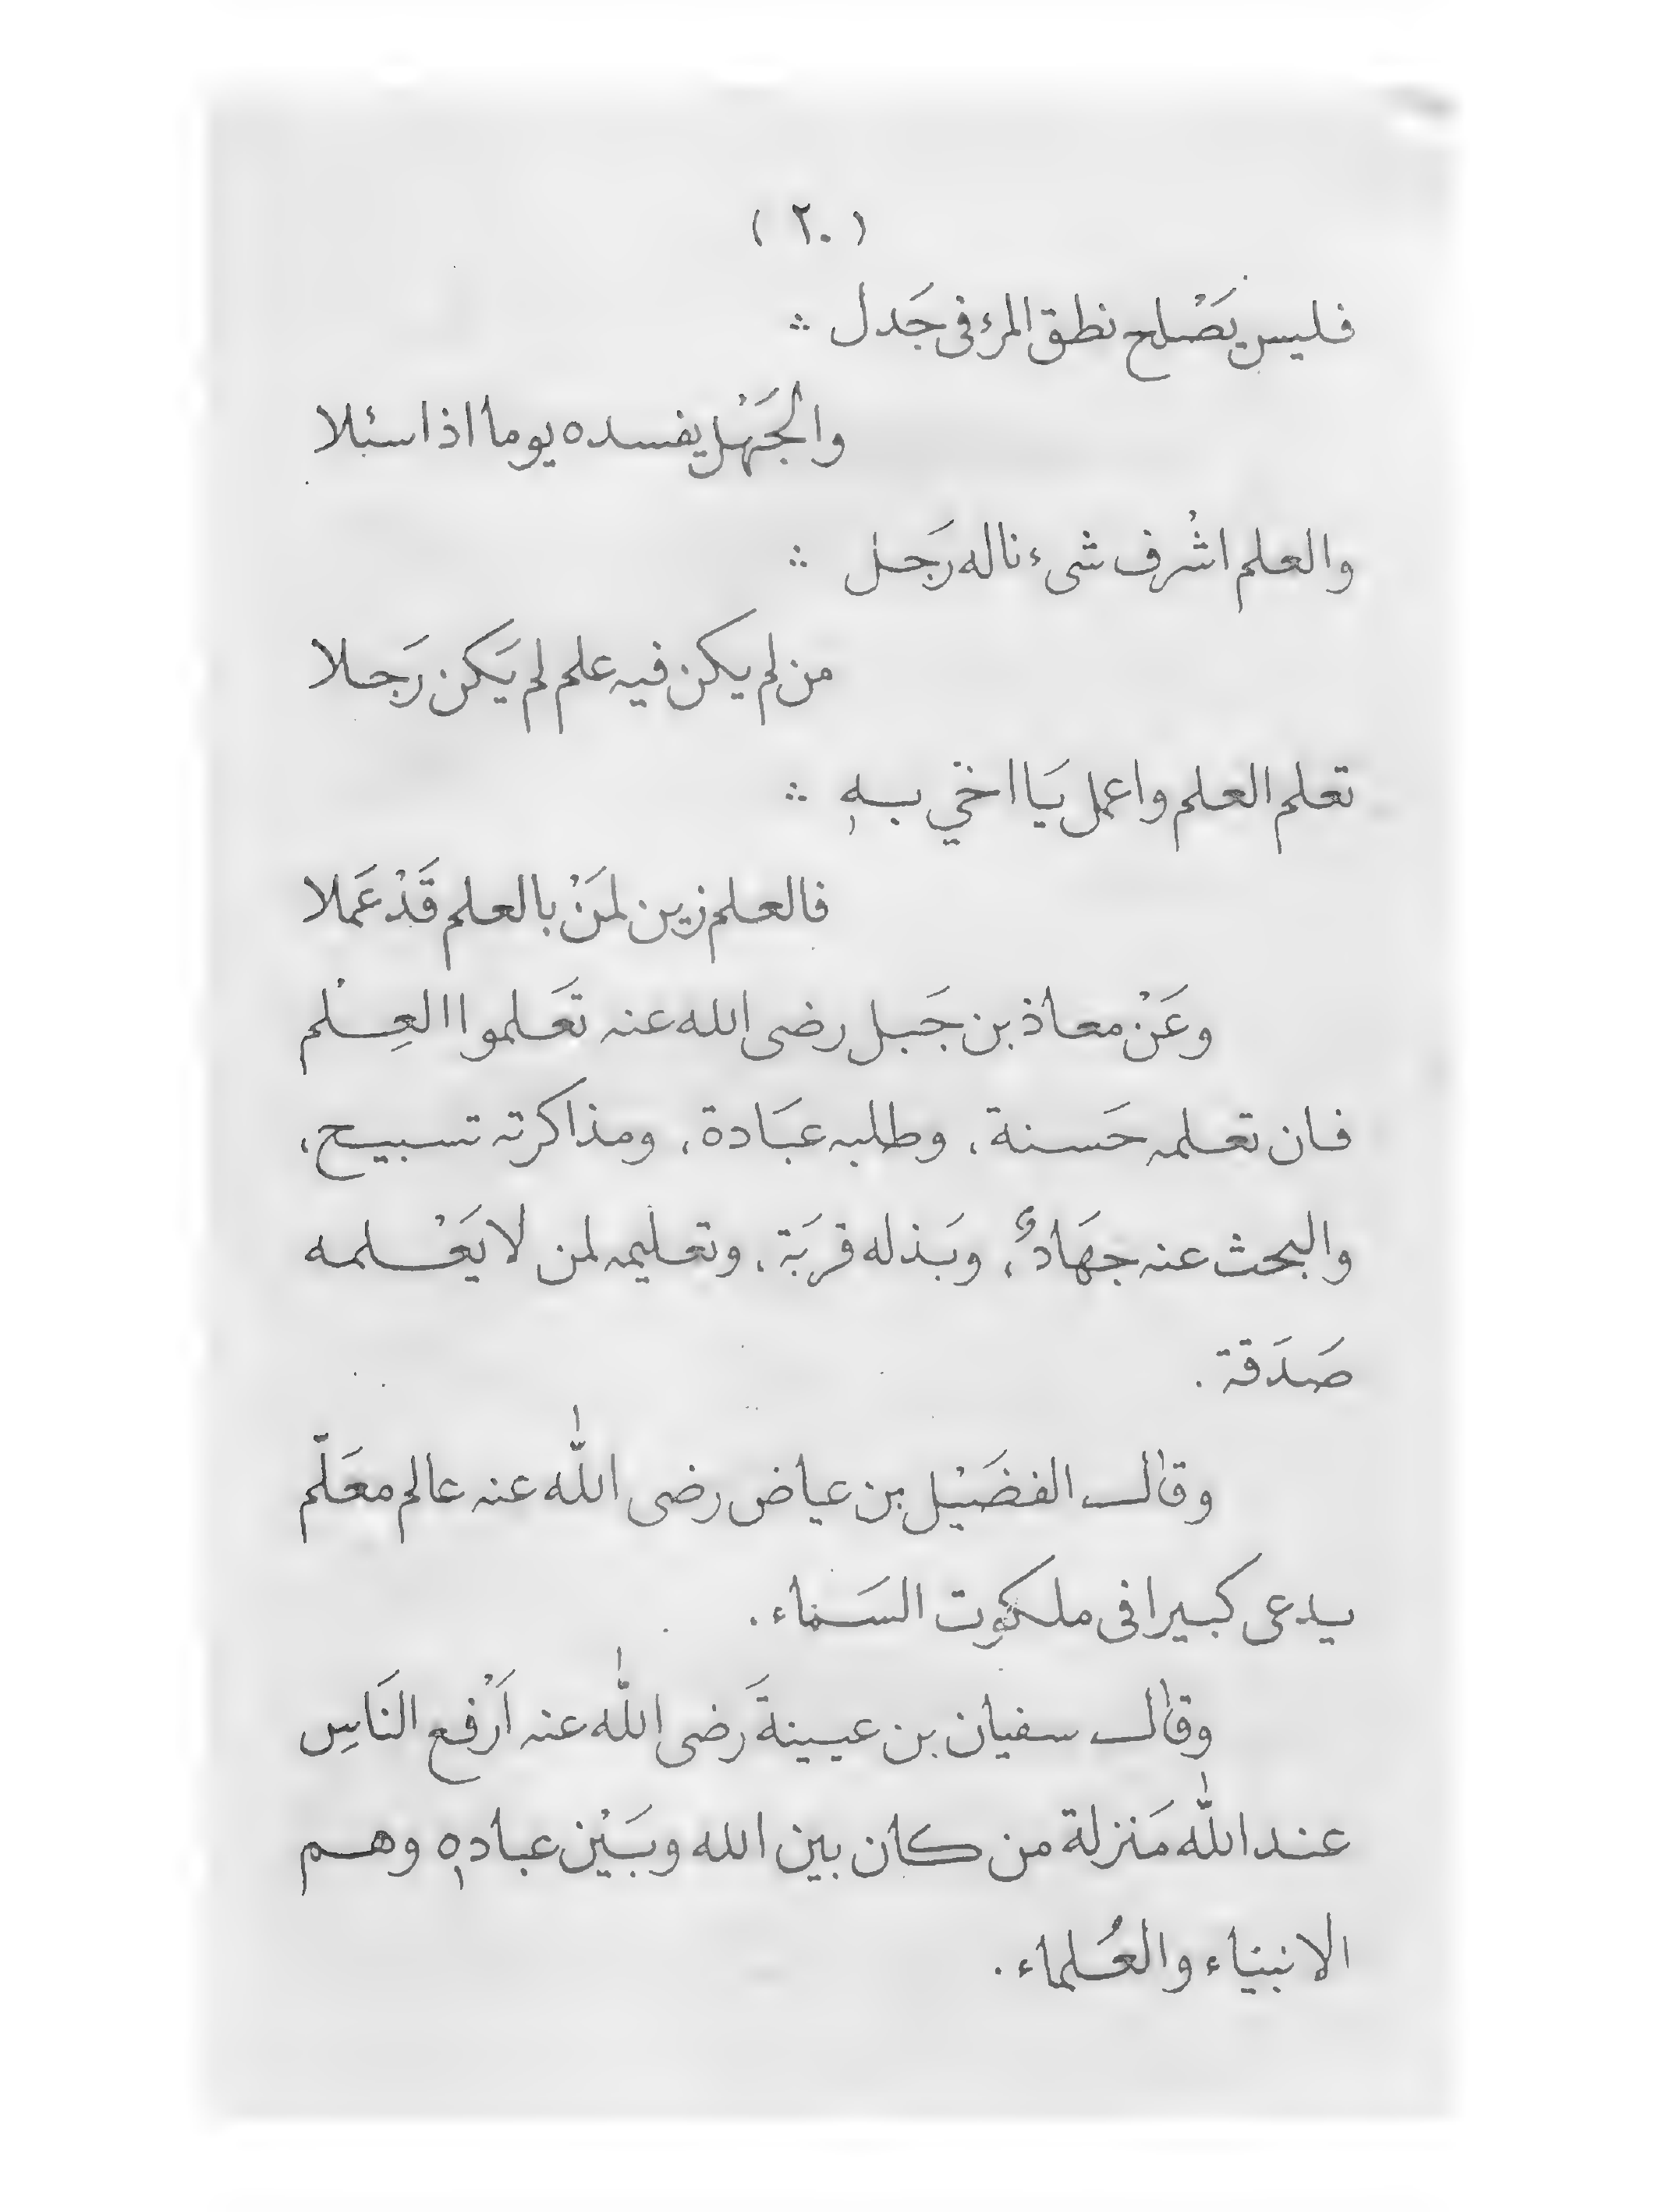 ( ٢٠ )
فليس يَصْلح نطق المرء فى جَدل ∴
والجَهْل يفسده يوما اذا سئلا
والعلم اشْرف شىء ناله رَجل ∴
من لم يكن فيه علم لم يَكن رَجلا
تعلم العلم واعمل يَا اخّي به ∴
فالعلم زين لمَنْ بالعلم قَدْ عَملا
وعَنْ معاذ بن جَبل رضى الله عنه تَعَلموا العِلْم
فان تعلمه حَسنة، وطلبه عبَادة، ومذاكرته تسبيح،
والبحث عنه جهَادٌ، وبَذله قربَة، وتعليمه لمن لا يَعْلمه
صَدَقة .
وقال الفضَيْل بن عياض رضى اللّٰه عنه عالم معَلّم
يدعى كبيرا فى ملكوت السَماء .
وقال سفيان بن عيينةَ رضى اللّٰه عنه اَرْفع النَاسِ
عند اللّٰه مَنزلة من كان بين الله وبَيْن عباده وهم
الانبيَاء والعُلماء .